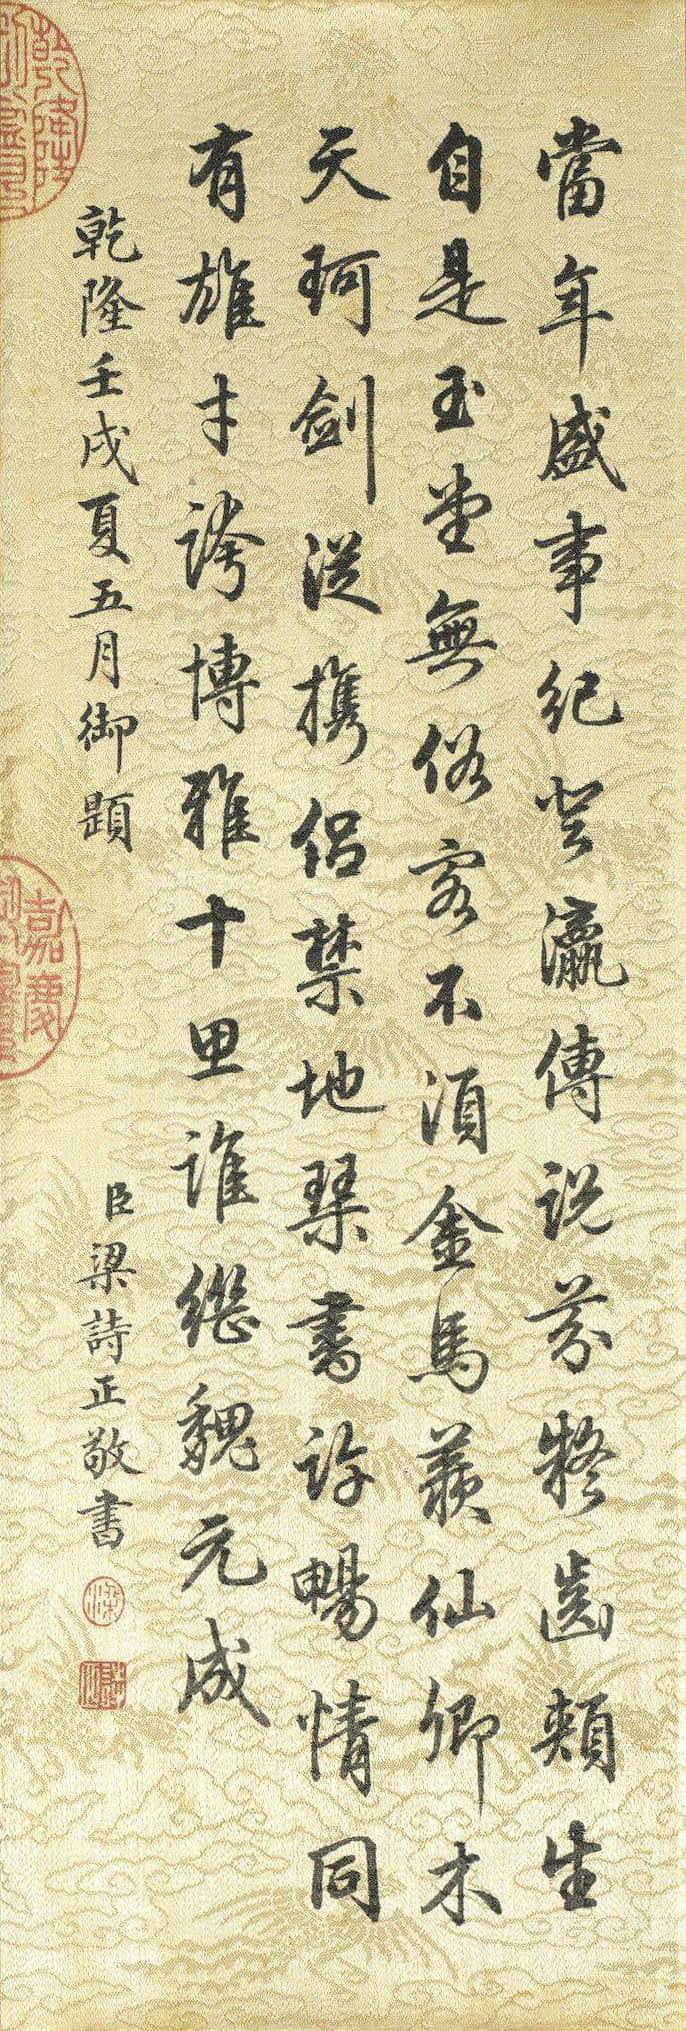 當年盛事紀登瀛傳說芬馣齒頰生
自是玉堂無俗客不須金馬羨仙卿木
天珂劍從携侶禁地琴書許暢情同
有雄才誇博雅十思誰繼魏元成
乾隆壬戌夏五月御題
臣梁詩正敬書
乾隆
嘉慶